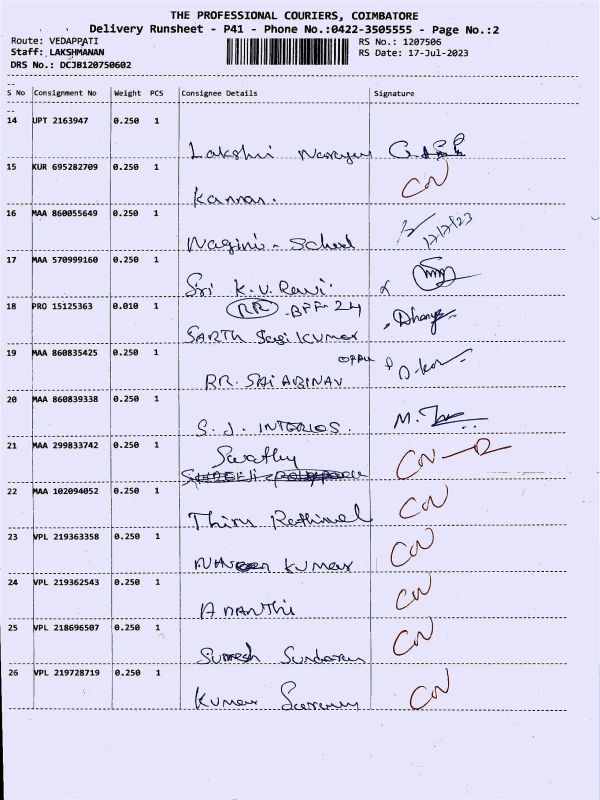 THE PROFESSIONAL COURIERS, COIMBATORE
Delivery Runsheet - P41 - Phone No.:0422-3505555 - Page No.:2
Route: VEDAPPATI RS No.: 1207506
Staff: LAKSHMANAN RS Date: 17-Jul-2023
DRS No.: DCJB120750602
S No Consignment No Weight PCS Consignee Details Signature
14 UPT 2163947 0.250 1
Lakshmi Narayan
15 KUR 695282709 0.250 1
Kannan. CN
16 MAA 860055649 0.250 1
Nagini - School 17/7/23
17 MAA 570999160 0.250 1
Sri K.V. Ravi
18 PRO 15125363 0.010 1
RR BFF-24
SARTH Sasi KUMAR
19 MAA 860835425 0.250 1
RR. SAI ABINAV
20 MAA 860839338 0.250 1
S.J. INTERIOS.
21 MAA 299833742 0.250 1
Swathy CN
22 MAA 102094052 0.250 1
Thiru Rathinvel CN
23 VPL 219363358 0.250 1
KUMAR CN
24 VPL 219362543 0.250 1
ANANTHI CN
25 VPL 218696507 0.250 1
Suresh Sundaram CN
26 VPL 219728719 0.250 1
Kumar CN